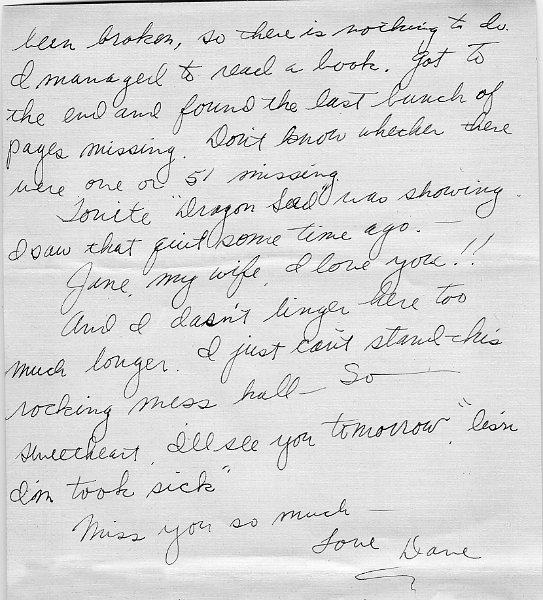 been broken, so there is nothing to do.
I managed to read a book. Got to
the end and found the last bunch of
pages missing. Don't know whether there
were one or 51 missing
Tonite "Dragon Seed" was showing.
I saw that quite some time ago. —
Jane, my wife, I love you!!
And I dasn't linger here too
much longer. I just can't stand this
rocking mess hall — So —
sweetheart, I'll see you tomorrow, "less'n
I'm took sick"
Miss you so much —
Love Dave